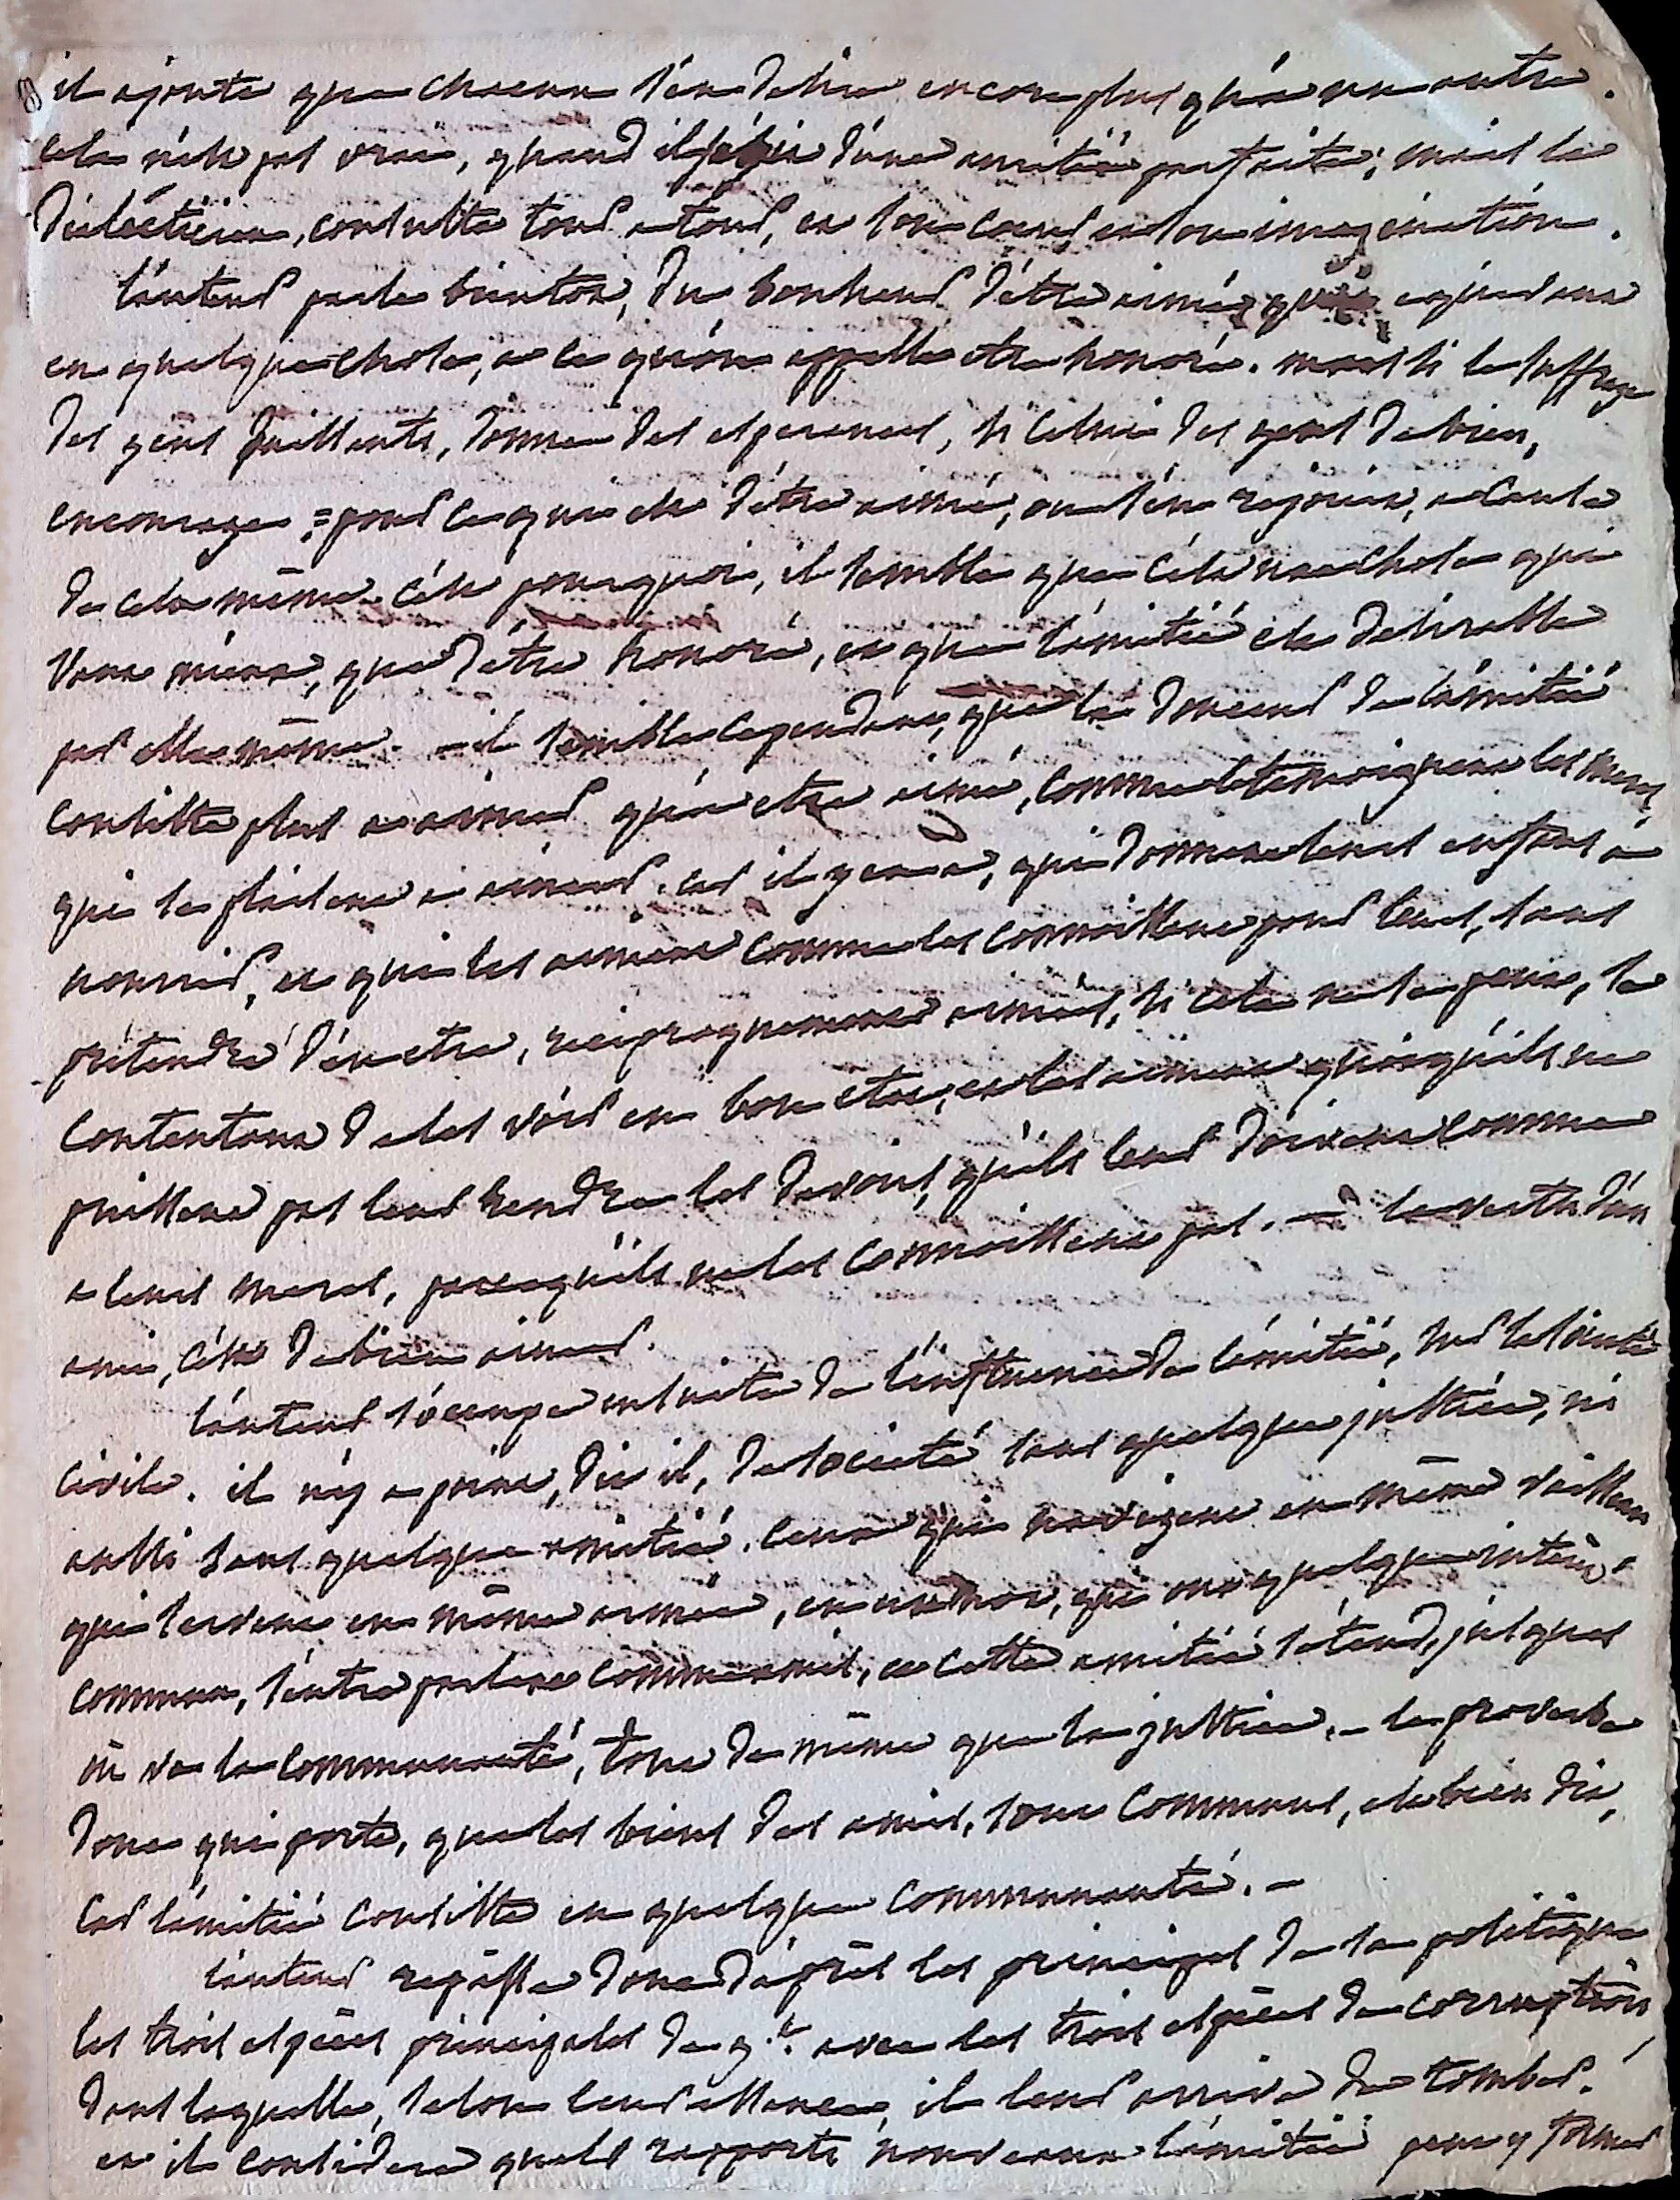 il ajoute que chacun s'en desire encore plus qu'a un autre.
cela n'est pas vrai, quand il s'agit d'une amitié parfaite; mais le
dialécticien, consulte tour a tour, et son coeur et son imagination.
l'auteur parle bientot, du bonheur d'étre aimé, qui équivaut
en quelque chose, a ce qu'on appelle etre honoré. mais si le suffrage
des gens puissants, donne des esperances, si celui des gens de bien,
encourage; = pour ce qui est d'étre aimé, on s'en rejouit, a cause
de cela même. c'est pourquoi, il semble que cela soit chose qui
vaut mieux, que d'étre honoré, et que l'amitié est desirable
par elle même. - il semble cependant, que la douceur de l'amitié
consiste plus a aimer qu'a etre aimé, comme le temoignent les meres,
qui se plaisent a aimer. car il y en a, qui donnent leurs enfans a
nourrir, et qui les aiment comme les connoissant pour leurs, sans
prétendre d'en etre, reciproquement aimées, si cela ne se peut, se
contentant de les voir en bon etat, et les aiment quoiqu'ils ne
puissent pas leur rendre les devoirs, qu'ils leur doivent comme
a leurs meres, parcequ'ils ne les connoissent pas. - la vertu d'un
ami, c'est de bien aimer.
l'auteur s'occupe ensuite de l'influence de l'amitié, sur la société
civile. il n'y a point, dit il, de société sans quelque justice, ni
aussi sans quelque amitié. ceux qui navigent en même vaisseau
qui servent en même armée, en un mot, qui ont quelque intérêt
commun, s'entre parlent comme amis, et cette amitié s'étend, jusques
où va la communauté, tout de même que la justice. - le proverbe
donc qui porte, que les biens des amis, sont communs, est bien dit,
car l'amitié consiste en quelque communauté. -
l'auteur repasse donc d'après les principes de la politique
les trois espèces principales de g.t avec les trois espèces de corruption
dans laquelle, selon leur essence, il leur arrive de tomber.
et il considere quels rapports nouveaux l'amitié peut y former